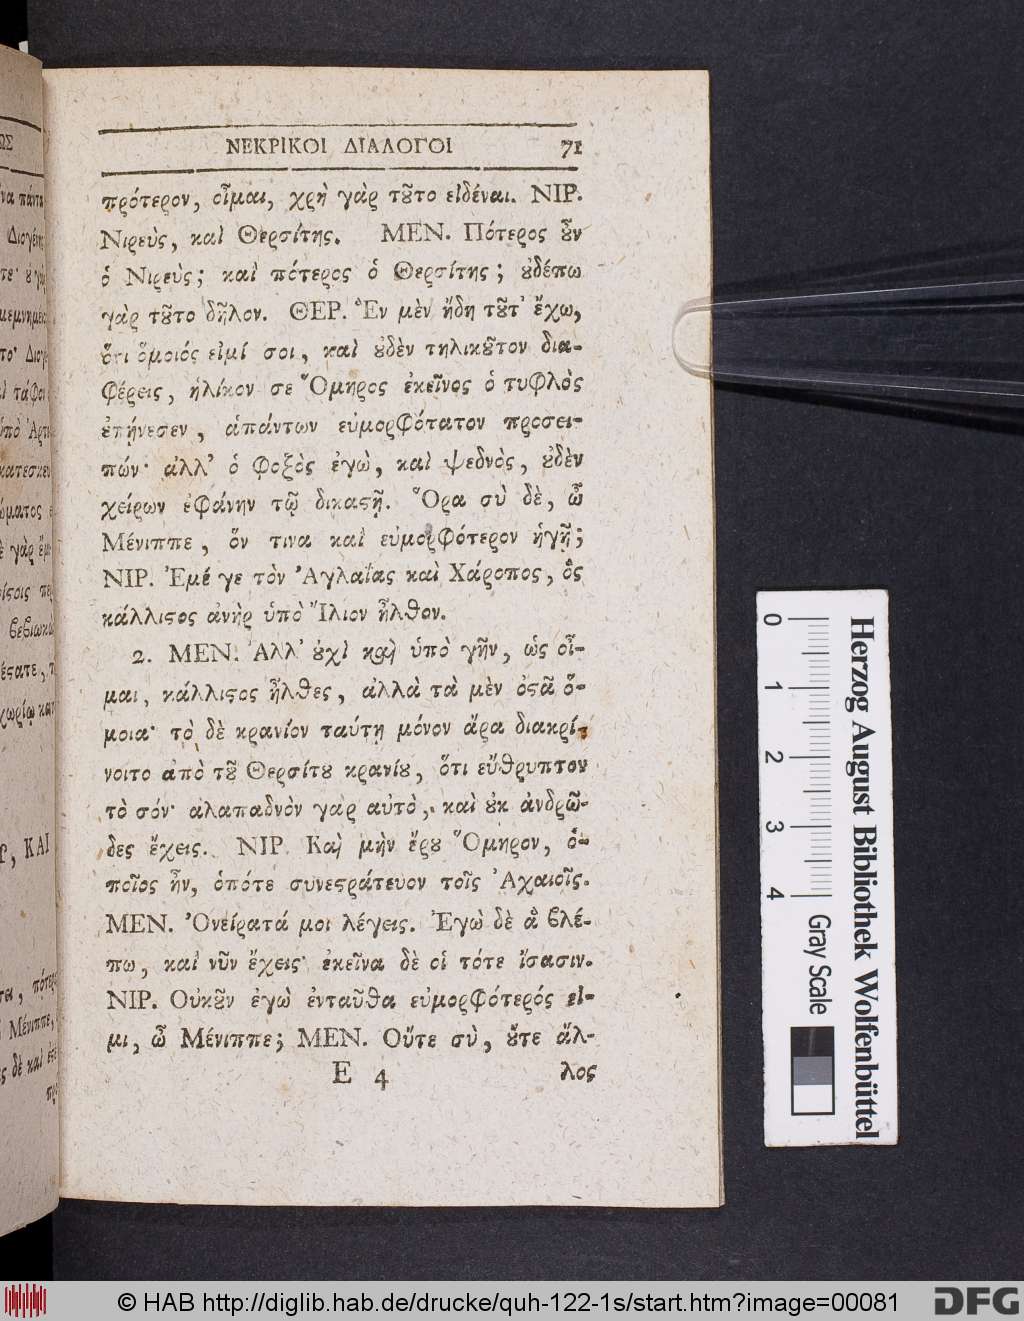 ΝΕΚΡΙΚΟΙ ΔΙΑΛΟΓΟΙ 71
πρότερον, οἶμαι, χρὴ γὰρ τȣ͂το εἰδέναι. ΝΙΡ.
Νιρεὺς, καὶ Θερσίτης. ΜΕΝ. Πότερος ȣ̓͂ν
ὁ Νιρεὺς; καὶ πότερος ὁ Θερσίτης; ȣ̓δέπω
γὰρ τȣ͂το δῆλον. ΘΕΡ. Ἓν μὲν ἤδη τȣ͂τ' ἔχω,
ὅτι ὅμοιός εἰμί σοι, καὶ ȣ̓δὲν τηλικȣ͂τον δια-
φέρεις, ἡλίκον σε Ὅμηρος ἐκεῖνος ὁ τυφλὸς
ἐπῄνεσεν, ἁπάντων εὐμορφότατον προσει-
πών· ἀλλ' ὁ φοξὸς ἐγὼ, καὶ ψεδνὸς, ȣ̓δὲν
χείρων ἐφάνην τῷ δικαϛῇ. Ὅρα σὺ δὲ, ὦ
Μένιππε, ὅν τινα καὶ εὐμορφότερον ἡγῇ;
ΝΙΡ. Ἐμέ γε τὸν Ἀγλαΐας καὶ Χάροπος, ὃς
κάλλιϛος ἀνὴρ ὑπὸ Ἴλιον ἦλθον.
2. ΜΕΝ. Ἀλλ' ȣ̓χὶ καὶ ὑπὸ γῆν, ὡς οἶ-
μαι, κάλλιϛος ἦλθες, ἀλλὰ τὰ μὲν ὀϛᾶ ὅ-
μοια· τὸ δὲ κρανίον ταύτῃ μόνον ἄρα διακρί-
νοιτο ἀπὸ τȣ͂ Θερσίτȣ κρανίȣ, ὅτι εὔθρυπτον
τὸ σόν· ἀλαπαδνὸν γὰρ αὐτὸ, καὶ ȣ̓κ ἀνδρῶ-
δες ἔχεις. ΝΙΡ. Καὶ μὴν ἔρȣ Ὅμηρον, ὁ-
ποῖος ἦν, ὁπότε συνεϛράτευον τοῖς Ἀχαιοῖς.
ΜΕΝ. Ὀνείρατά μοι λέγεις. Ἐγὼ δὲ ἃ βλέ-
πω, καὶ νῦν ἔχεις· ἐκεῖνα δὲ οἱ τότε ἴσασιν.
ΝΙΡ. Οὐκȣ͂ν ἐγὼ ἐνταῦθα εὐμορφότερός εἰ-
μι, ὦ Μένιππε; ΜΕΝ. Οὔτε σὺ, ȣ̓́τε ἄλ-
Ε 4 λος
0 1 2 3 4
Gray Scale
Herzog August Bibliothek Wolfenbüttel
© HAB http://diglib.hab.de/drucke/quh-122-1s/start.htm?image=00081
DFG